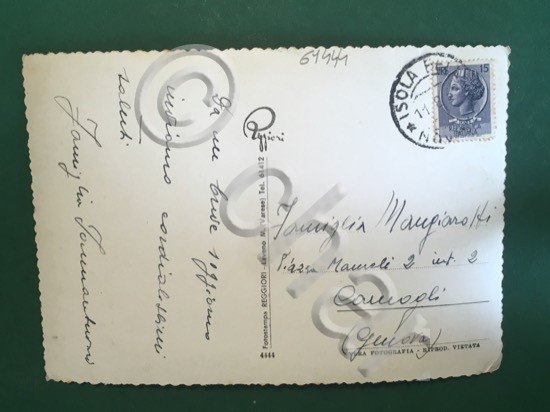 61441
Da un breve soggiorno
inviamo cordialissimi
saluti
Famiglia
Reggiori
Fotostampa REGGIORI Laveno M. (Varese) Tel. 61412
4444
ISOLA
15
Famiglia Mangiarotti
Piazza Mameli 2 int. 2
Camogli
(Genova)
VERA FOTOGRAFIA - RIPROD. VIETATA